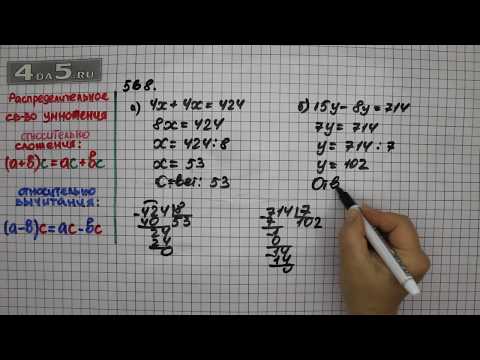 4DA5.RU
Распределительное
св-во умножения
относительно
сложения:
(a+b)c=ac+bc
относительно
вычитания:
(a-b)c=ac-bc
568.
а) 4x+4x=424
8x=424
x=424:8
x=53
Ответ: 53
-424 8
40 53
24
24
0
б) 15y-8y=714
7y=714
y=714:7
y=102
Отв
-714 7
7 102
-1
0
-14
14
0